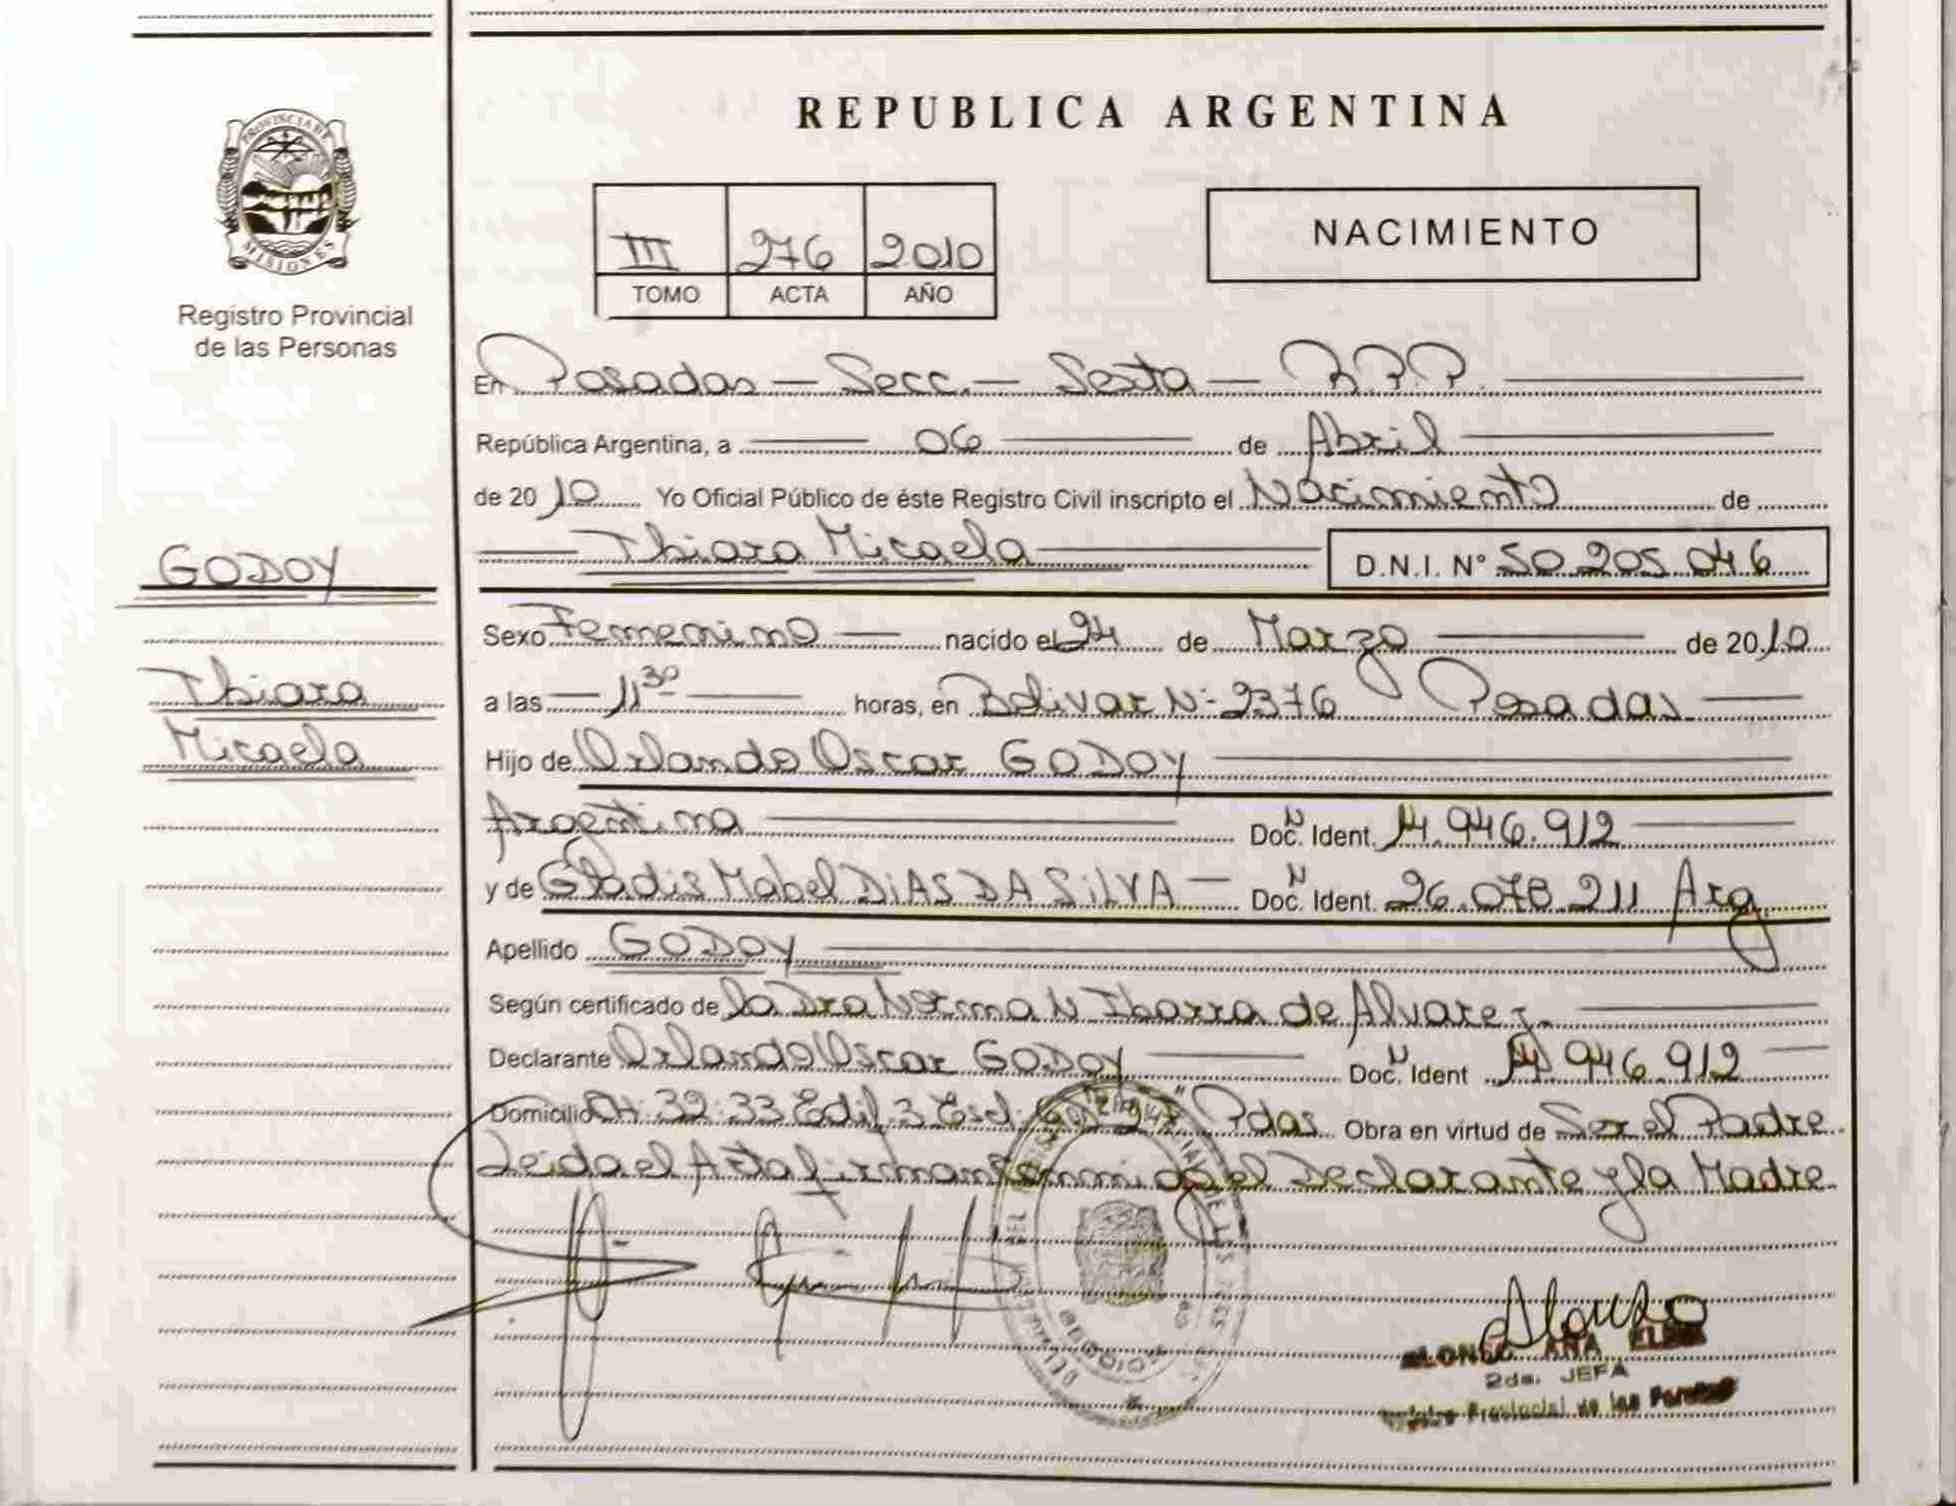 PROVINCIA DE
MISIONES
Registro Provincial
de las Personas
GODOY
Thiara
Micaela
REPUBLICA ARGENTINA
III 276 2010
TOMO ACTA AÑO
NACIMIENTO
En Posadas — Secc. — Sexta — R.P.P.
República Argentina, a 06 de Abril
de 2010 Yo Oficial Público de éste Registro Civil inscripto el Nacimiento de
Thiara Micaela D.N.I. N° 50.205.046
Sexo Femenino nacido el 24 de Marzo de 2010
a las 11³⁰ horas, en Bolivar Nº 2376 Posadas
Hijo de Orlando Oscar GODOY
Argentina Doc. N Ident. 14.946.912
y de Gladis Mabel DIAS DA SILVA Doc. N Ident. 26.078.211 Arg
Apellido GODOY
Según certificado de la Dra Norma N Ibarra de Alvarez
Declarante Orlando Oscar GODOY Doc. N Ident 14.946.912
Domicilio CH: 32-33 Edif 3 Esc. Pdas Obra en virtud de Ser el Padre
Leida el Acta firman conmigo el Declarante y la Madre
ALONSO ANA ELENA
2da. JEFA
Registro Provincial de las Personas